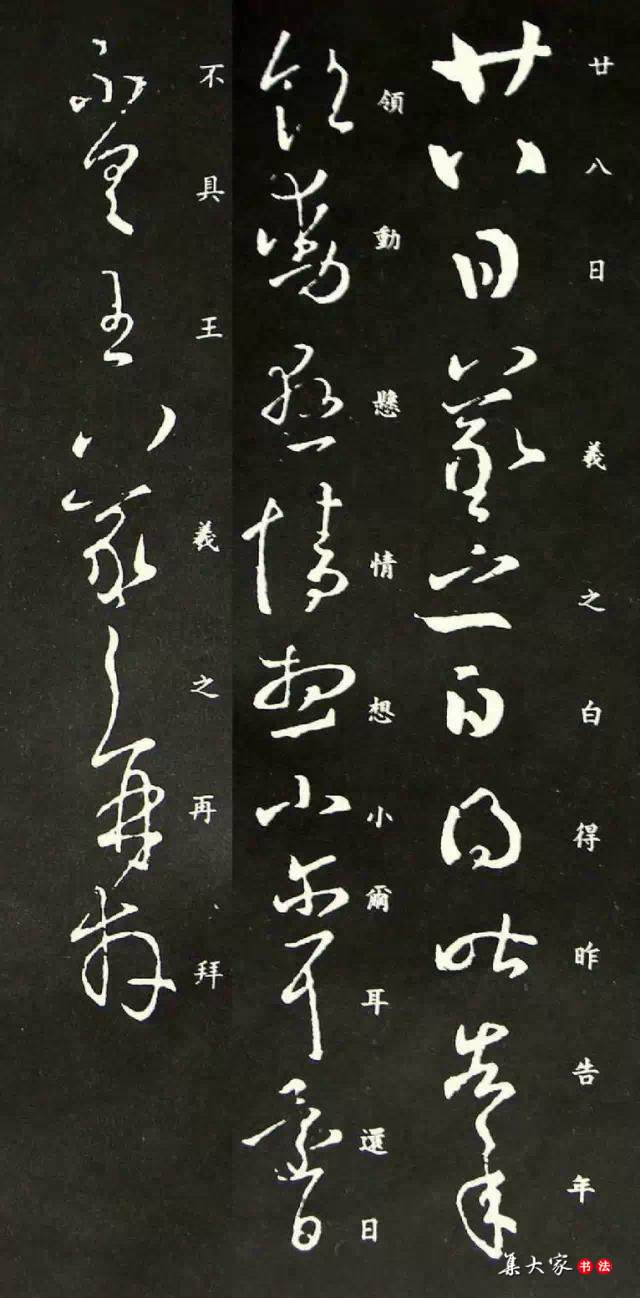 廿八日羲之白得昨告年
領動懸情想小爾耳還日
不具王羲之再拜
集大家书法